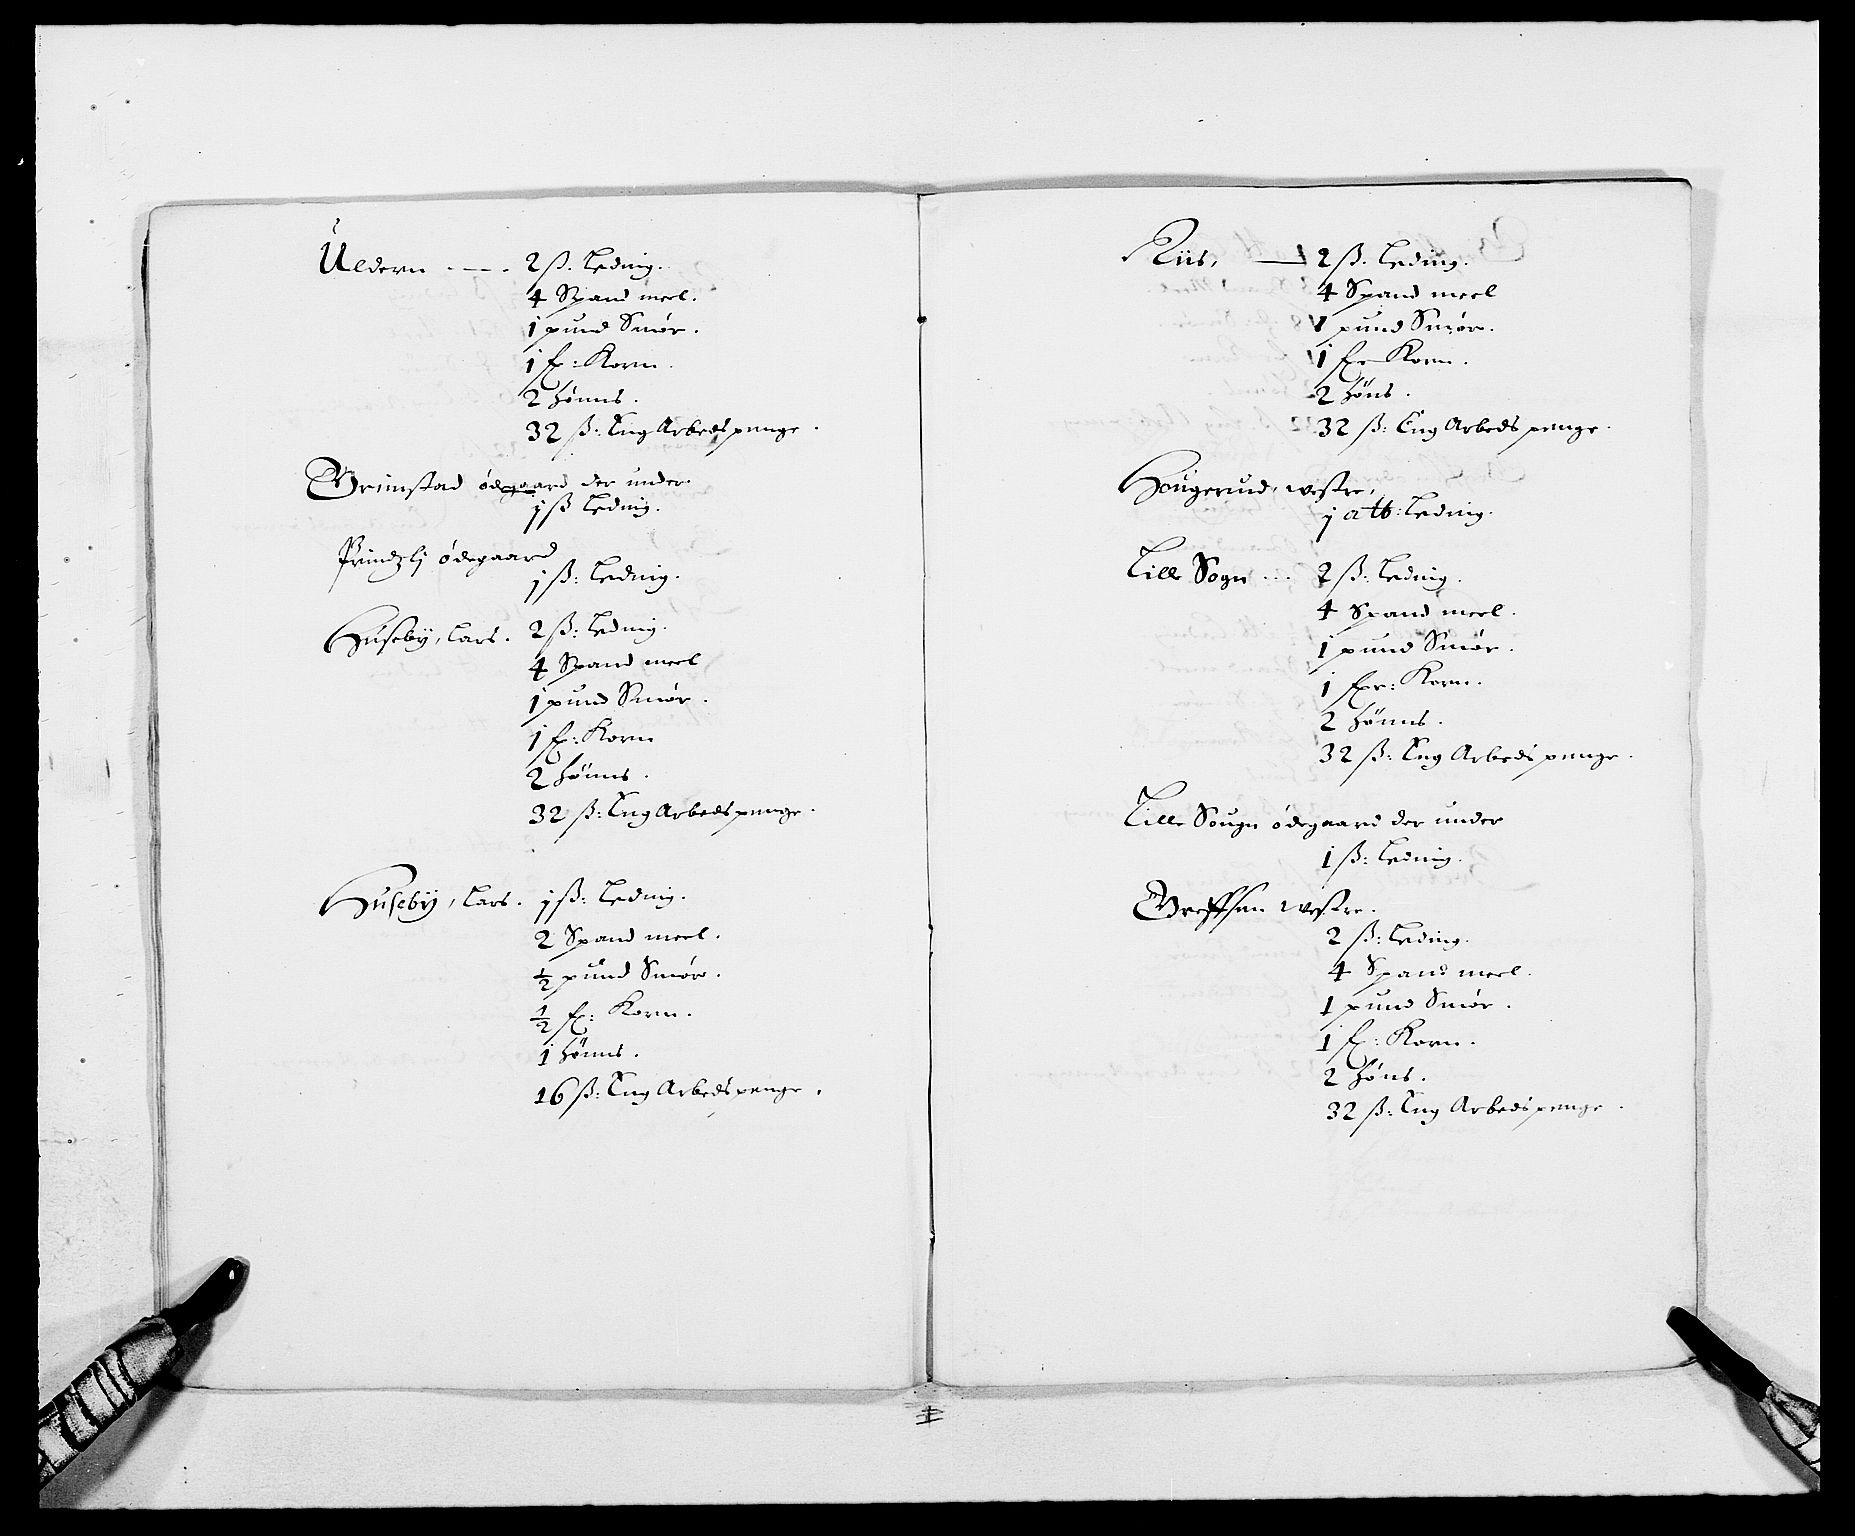 Uldern - — - 2 ß. Leding.
4 Spand meel.
1 pund Smør.
1 fr: Korn.
2 hönns.
32 ß: Eng Arbeds penge.
Grimstad ødegaard der under.
1 ß Leding.
Prindzlj ødegaard
1 ß: Leding.
Huseby, Lars. 2 ß: Leding.
4 Spand meel
1 pund Smør.
1 fr: Korn
2 hönns.
32 ß: Eng Arbeds penge.
Huseby, Lars. 1 ß: Leding.
2 Spand meel.
1/2 pund Smør.
1/2 fr: Korn.
1 hönns.
16 ß: Eng Arbeds penge.
Riis, — 2 ß. Leding.
4 Spand meel
1 pund Smør.
1 fr Korn.
2 höns.
32 ß: Eng Arbeds penge.
Hougerud, westre,
1 att: Leding.
Lille Sogn ... 2 ß: Leding.
4 Spand meel.
1 pund Smør.
1 fr: Korn.
2 hönns.
32 ß: Eng Arbeds penge.
Lille Sougn ødegaard der under
1 ß: Leding.
Greffsen westre.
2 ß: Leding.
4 Spand meel.
1 pund Smør.
1 fr: Korn.
2 höns.
32 ß: Eng Arbeds penge.